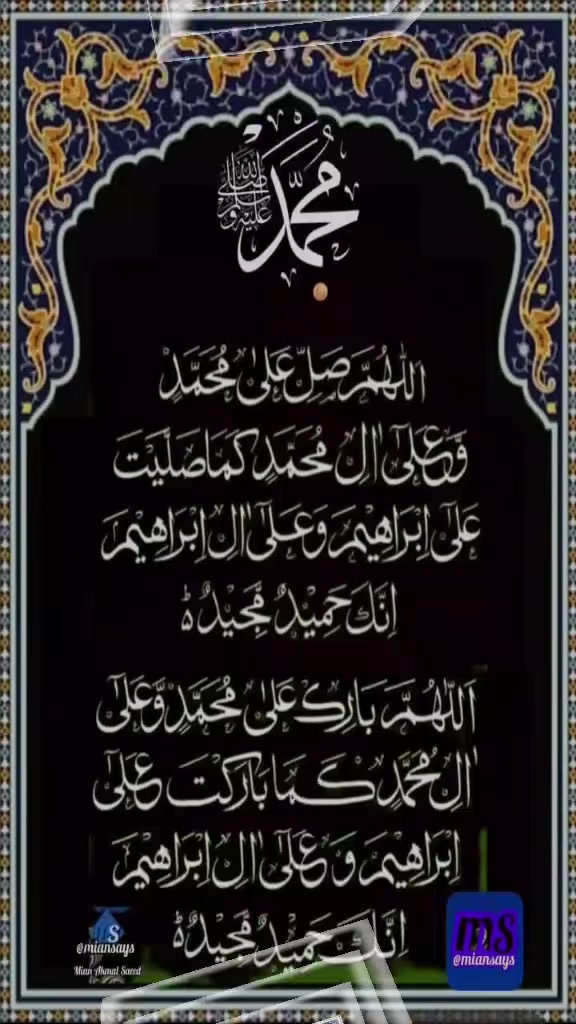 محمد
صلى الله عليه وسلم
اَللّٰهُمَّ صَلِّ عَلىٰ مُحَمَّدٍ
وَّعَلىٰٓ اٰلِ مُحَمَّدٍ كَمَا صَلَّيْتَ
عَلىٰٓ اِبْرَاهِيْمَ وَعَلىٰٓ اٰلِ اِبْرَاهِيْمَ
اِنَّكَ حَمِيْدٌ مَّجِيْدٌ ؕ
اَللّٰهُمَّ بَارِكْ عَلىٰ مُحَمَّدٍ وَّعَلىٰٓ
اٰلِ مُحَمَّدٍ كَمَا بَارَكْتَ عَلىٰٓ
اِبْرَاهِيْمَ وَ عَلىٰٓ اٰلِ اِبْرَاهِيْمَ
اِنَّكَ حَمِيْدٌ مَّجِيْدٌ ؕ
ms
@miansays
Mian Akmal Saeed
ms
@miansays